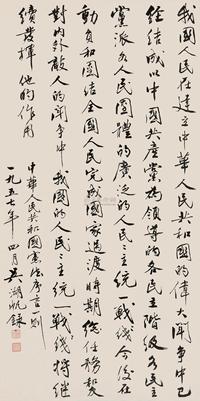 我國人民在建立中華人民共和國的偉大鬥爭中已
經結成以中國共產黨為領導的各民主階級各民主
黨派各人民團體的廣泛的人民〻主統一戰綫今後在
動員和團結全國人民完成國家過渡時期總任務和反
對內外敵人的鬥爭中我國的人民〻主統一戰綫將繼
續發揮他的作用
中華人民共和國憲法序言一則
一九五七年四月吳湖帆錄